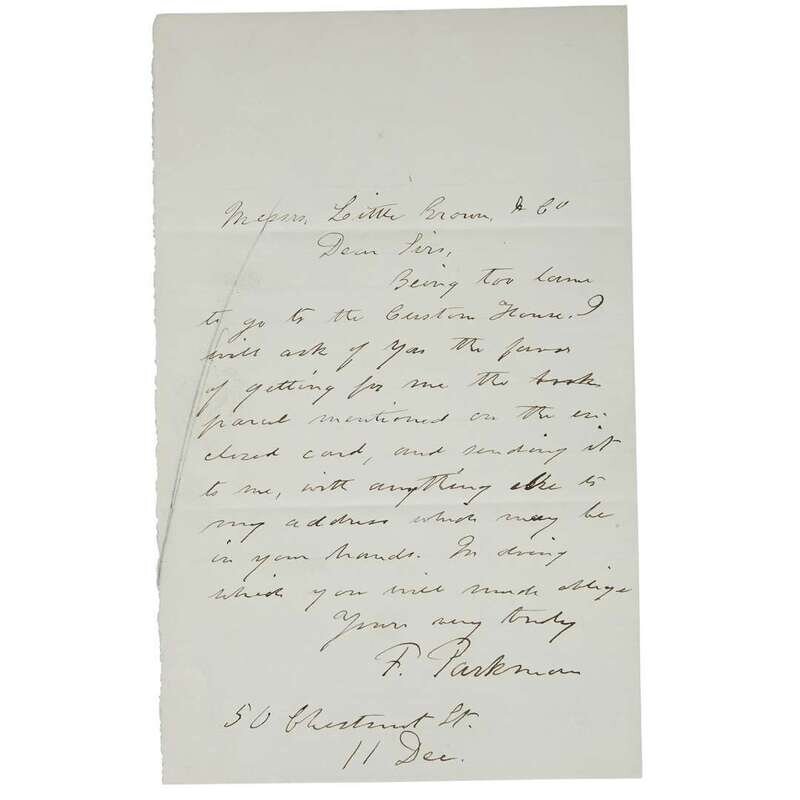 Messrs. Little Brown, & Co
Dear Sirs,
Being too lame
to go to the Custom House, I
will ask of you the favor
of getting for me the book
parcel mentioned on the en-
closed card, and sending it
to me, with anything else to
my address which may be
in your hands. In doing
which you will much oblige
Yours very truly
F. Parkman
50 Chestnut St.
11 Dec.